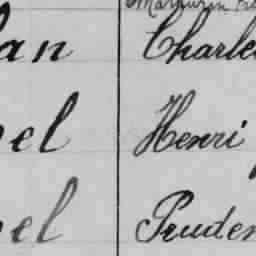 an Charle
el Henri
el Pruden